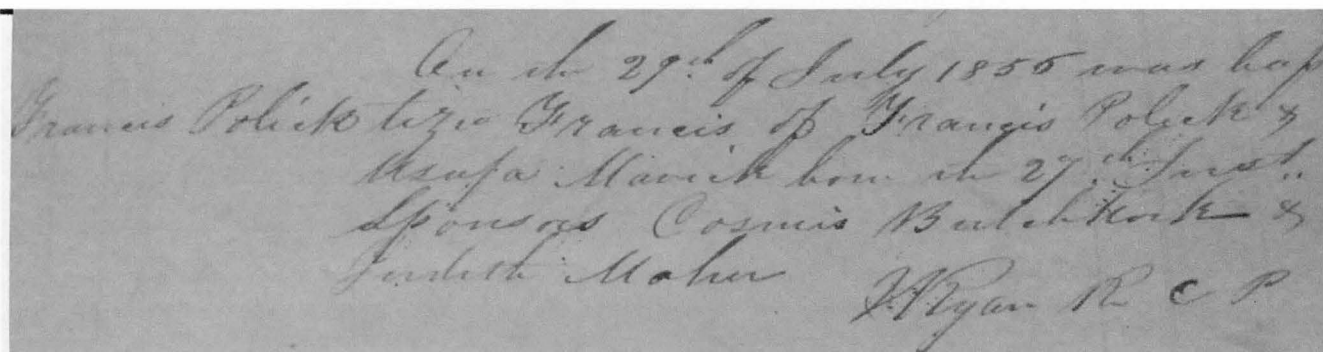 On the 29th of July 1855 was bap
Francis Polick tize Francis of Francis Polick &
Mavick born the 27th Inst.
Sponsors Cosmis &
Judith Maher
Ryan R C P